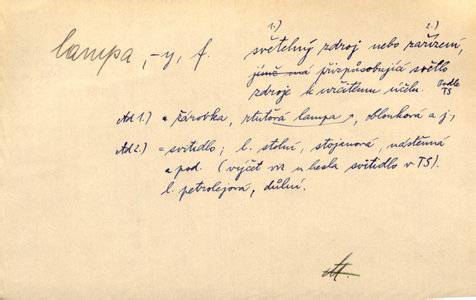 1.) 2.)
lampa, -y, f. světelný zdroj nebo zařízení,
přizpůsobující světlo
zdroje k určitému účelu. Podle TS
Ad 1.) = žárovka, rtuťová lampa, oblouková a j.,
Ad 2.) = svítidlo; l. stolní, stojanová, nástěnná
a pod. (výčet viz u hesla svítidlo v TS).
l. petrolejová, důlní.